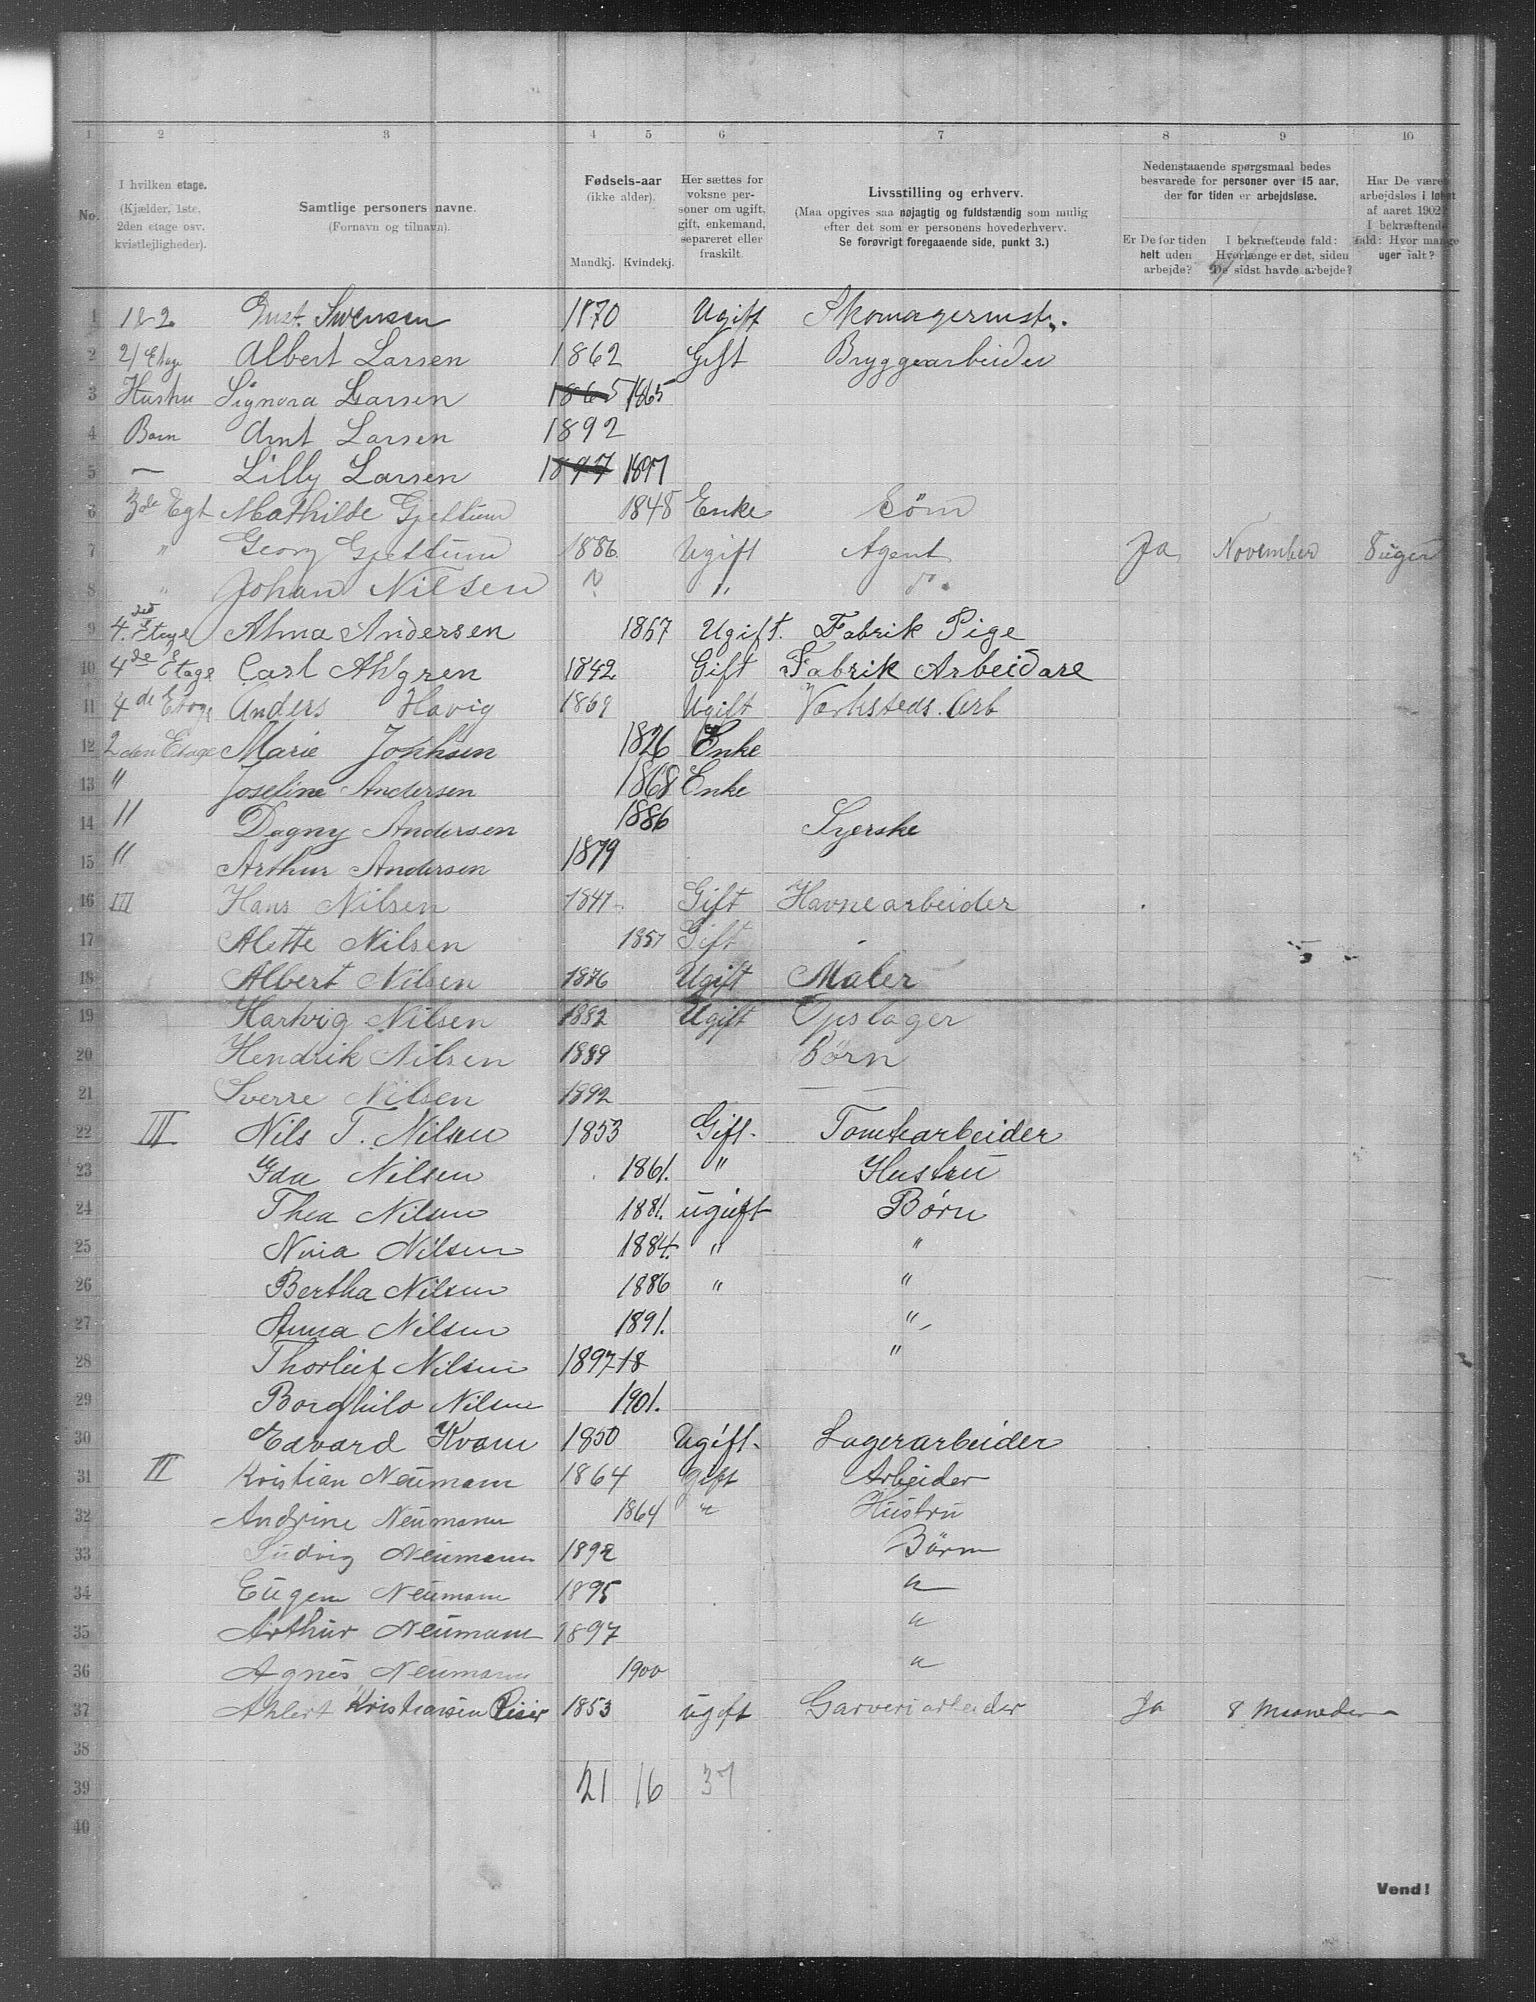 1 2 3 4 5 6 7 8 9 10
No. I hvilken etage. (Kjælder, 1ste, 2den etage osv. kvistlejligheder). Samtlige personers navne. (Fornavn og tilnavn). Fødsels-aar (ikke alder). Mandkj. Kvindekj. Her sættes for voksne personer om ugift, gift, enkemand, separeret eller fraskilt. Livsstilling og erhverv. (Maa opgives saa nøjagtig og fuldstændig som mulig efter det som er personens hovederhverv. Se forøvrigt foregaaende side, punkt 3.) Nedenstaaende spørgsmaal bedes besvarede for personer over 15 aar, der for tiden er arbejdsløse. Er De for tiden helt uden arbejde? I bekræftende fald: Hvorlænge er det, siden De sidst havde arbejde? Har De været arbejdsløs i løbet af aaret 1902? I bekræftende fald: Hvor mange uger ialt?
1 1 & 2 Gust. Swensen 1870 Ugift Skomagermst.
2 2/ Etage Albert Larsen 1862 Gift Bryggearbeider
3 Hustru Signora Larsen 1865 1865
4 Barn Arnt Larsen 1892
5 — Lilly Larsen 1897 1897
6 3de Etg Mathilde Gjettum 1848 Enke Søm
7 " Georg Gjettum 1886 Ugift Agent Ja November 8 uger
8 " Johan Nilsen ? " do
9 4.de Etage Alma Andersen 1867 Ugift. Fabrik Pige
10 4de Etage Carl Ahlgren 1842 Gift Fabrik Arbeidare
11 4de Etage Anders Havig 1869 Ugift Værksteds. Arb
12 2den Etage Marie Johnsen 1826 Enke
13 " Josefine Andersen 1868 Enke
14 " Dagny Andersen 1886 Syerske
15 " Arthur Andersen 1879
16 III Hans Nilsen 1847 Gift Havnearbeider
17 Alette Nilsen 1857 Gift
18 Albert Nilsen 1876 Ugift Maler
19 Hartvig Nilsen 1882 Ugift Opslager
20 Hendrik Nilsen 1889 Børn
21 Sverre Nilsen 1892 — —
22 III Nils T. Nilsen 1853 Gift. Tomtearbeider
23 Ida Nilsen 1861. " Hustru
24 Thea Nilsen 1881. ugift Børn
25 Nina Nilsen 1884. " "
26 Bertha Nilsen 1886 " "
27 Anna Nilsen 1891. "
28 Thorleif Nilsen 1897 18 "
29 Borghild Nilsen 1901.
30 Edvard Kvam 1850 Ugift. Lagerarbeider
31 II Kristian Neumann 1864 Gift Arbeider
32 Andrine Neumann 1864 " Hustru
33 Ludvig Neumann 1892 Børn
34 Eugen Neumann 1895 "
35 Arthur Neumann 1897 "
36 Agnes Neumann 1900 "
37 Ahlert Kristiansen 1853 ugift Garveriarbeider Ja 8 Maaneder
38
39 21 16 37
40
Vend!